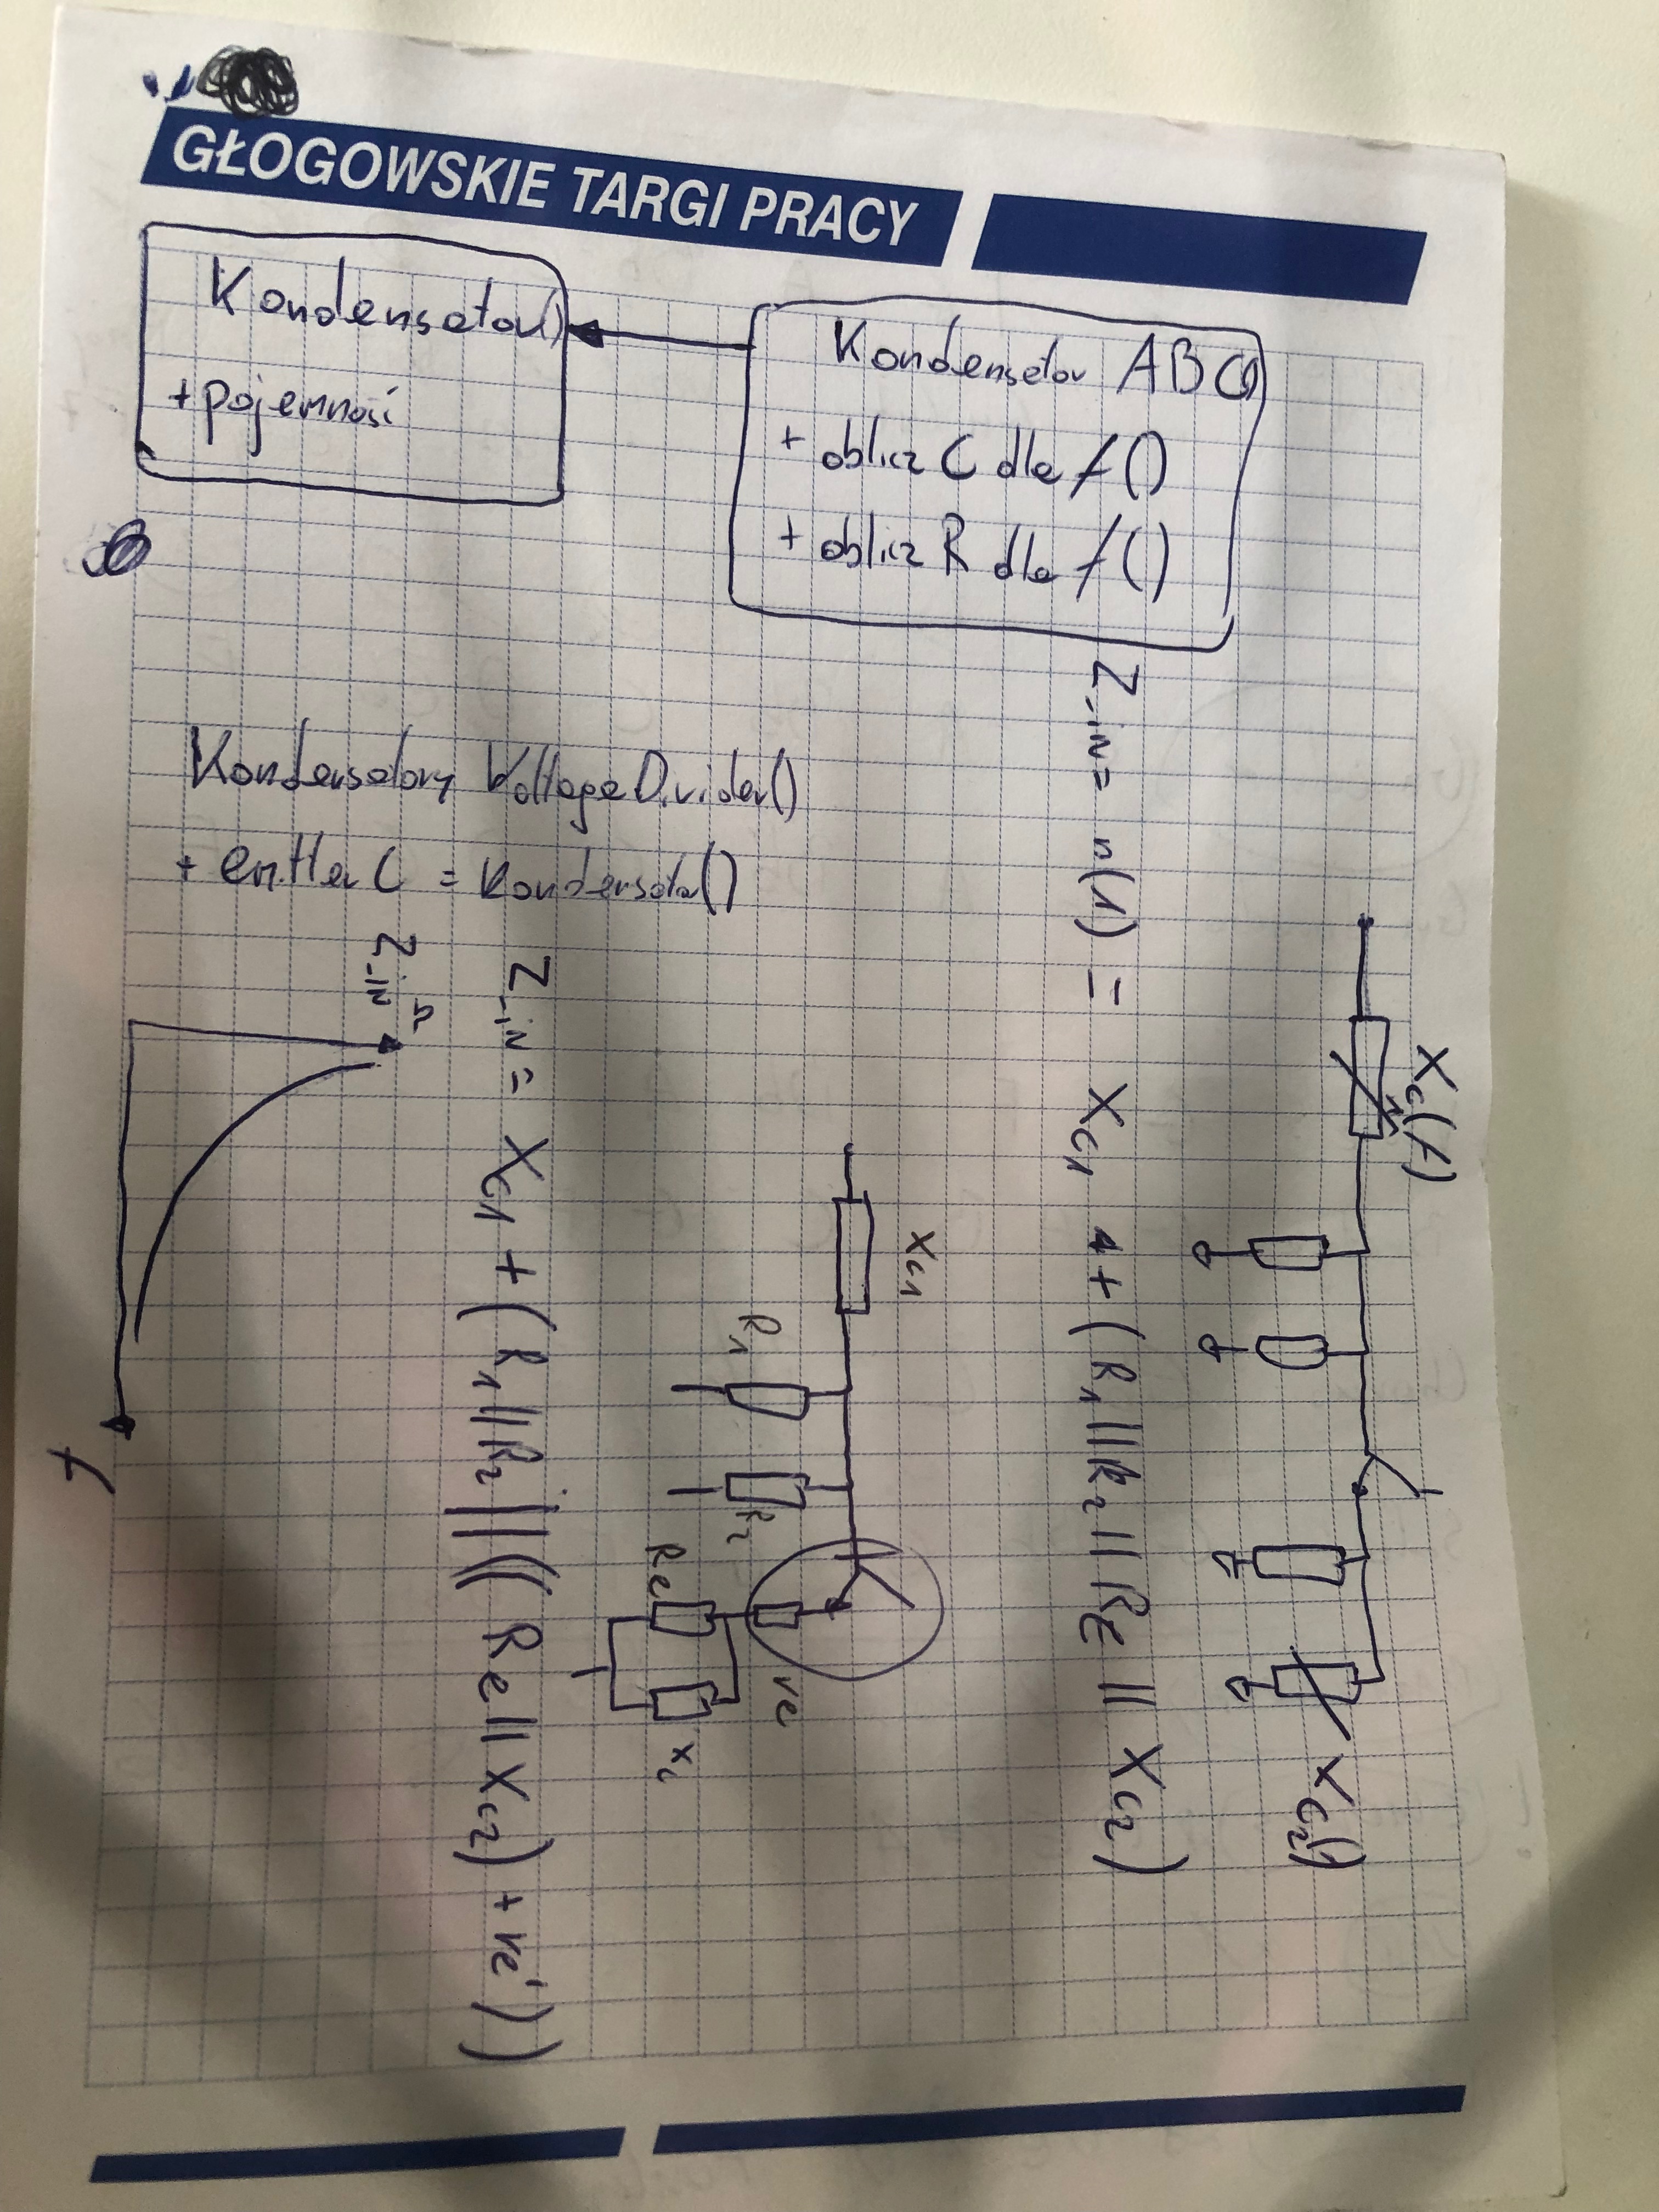 GŁOGOWSKIE TARGI PRACY
Kondensator()
+ pojemność
Kondensator ABC()
+ oblicz C dla f()
+ oblicz R dla f()
Kondensatory VoltageDivider()
+ emitter C = Kondensator()
Xc(f)
Xc2()
Z_IN = n(1) = Xc1 + (R1 || R2 || RE || Xc2)
Xc1
R1
R2
Re
re
Xc
Z_IN = Xc1 + (R1 || R2 || ((Re || Xc2) + re'))
Z_IN
Ω
f